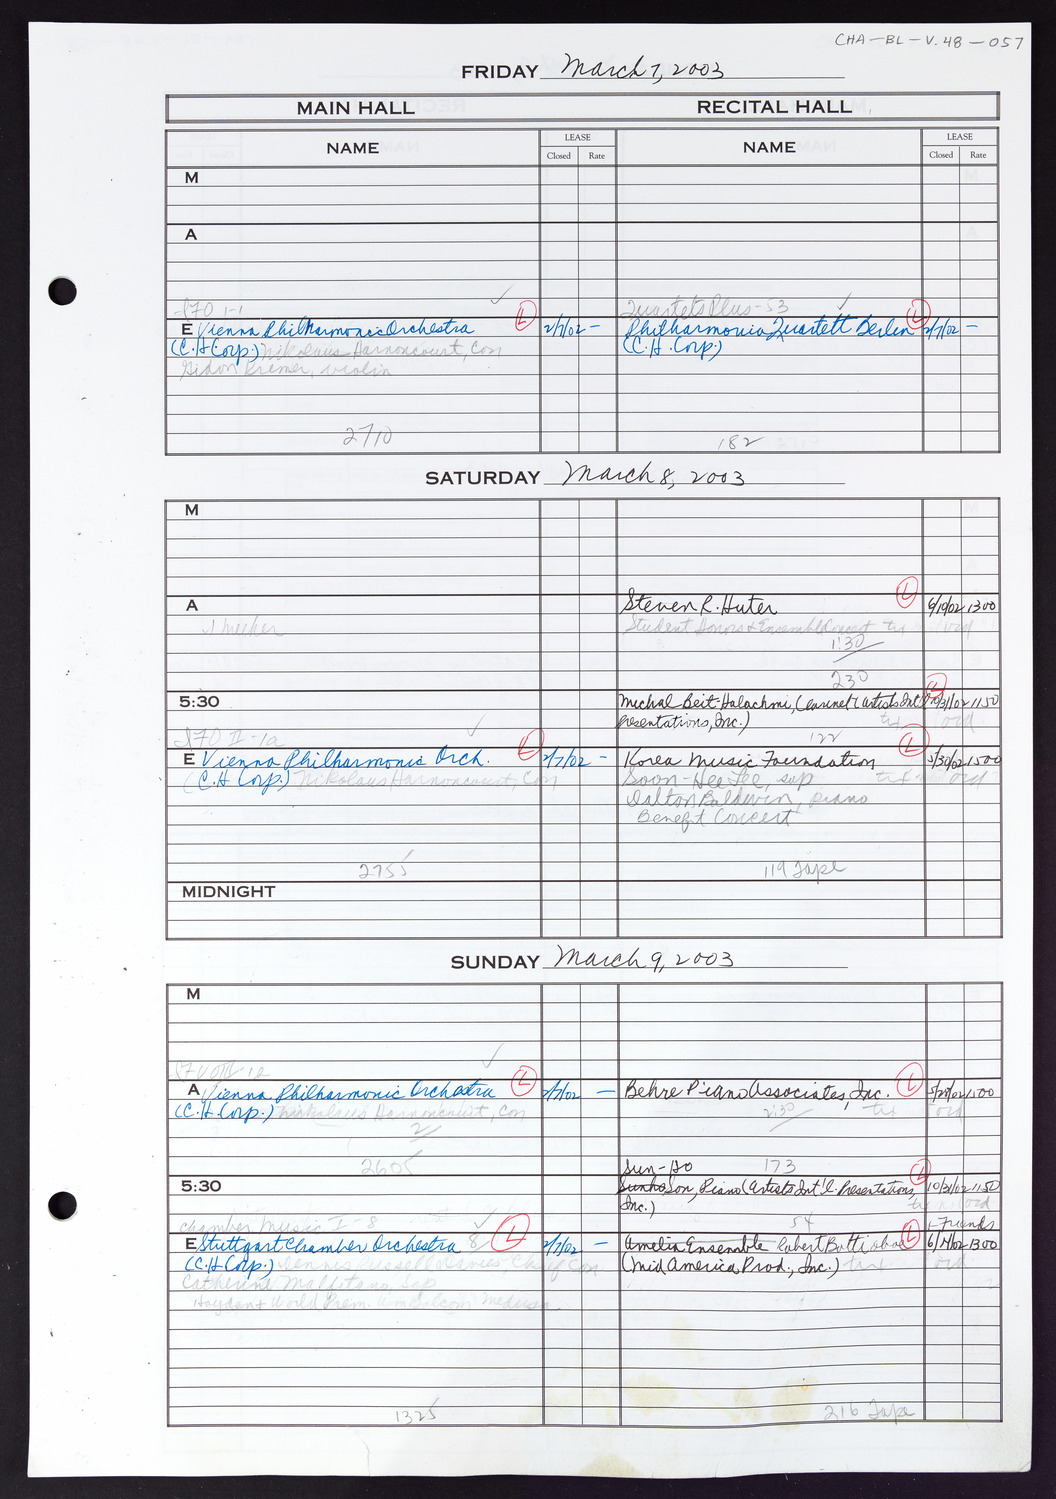 CHA-BL-V.48-057
FRIDAY March 7, 2003
MAIN HALL RECITAL HALL
NAME LEASE NAME LEASE
Closed Rate Closed Rate
M
A
Quartets Plus-S3
E Vienna Philharmonic Orchestra L 2/7/02 - Philharmonia Quartett Berlin L 2/7/02 -
(C.H Corp.) Nikolaus Harnoncourt, Con (C.H. Corp.)
Gidon Kremer, violin
2710 182
SATURDAY March 8, 2003
M
A Steven R. Huter L 6/19/02 1300
Student Honors & Ensemble Concert
1:30
230
5:30 Michal Beit-Halachmi, Clarinet (Artists Int'l L 10/31/02 1150
Presentations, Inc.)
122
E Vienna Philharmonic Orch. L 2/7/02 - Korea Music Foundation L 5/30/02 1500
(C.H Corp.) Nikolaus Harnoncourt, Con Soon-Hee Lee, sop
Dalton Baldwin, piano
Benefit Concert
2755 119 Tape
MIDNIGHT
SUNDAY March 9, 2003
M
A Vienna Philharmonic Orchestra L 2/7/02 - Behre Piano Associates, Inc. L 5/20/02 1500
(C.H Corp.) Nikolaus Harnoncourt, Con 2:30
2/
2605 Sun-Ho 173
5:30 Sunho Son, Piano (Artists Int'l. Presentations, L 10/31/02 1150
Inc.)
Chamber Music I-8 54
E Stuttgart Chamber Orchestra 8 L 2/7/02 - Amelia Ensemble Robert Batti L 6/17/02 1300
(C.H Corp.) Dennis Russell Davies, Chief Con (Mid America Prod., Inc.)
Catherine Malfitano, Sop
Haydn + World Prem. Wm Bolcom Medusa
1325 216 Tape